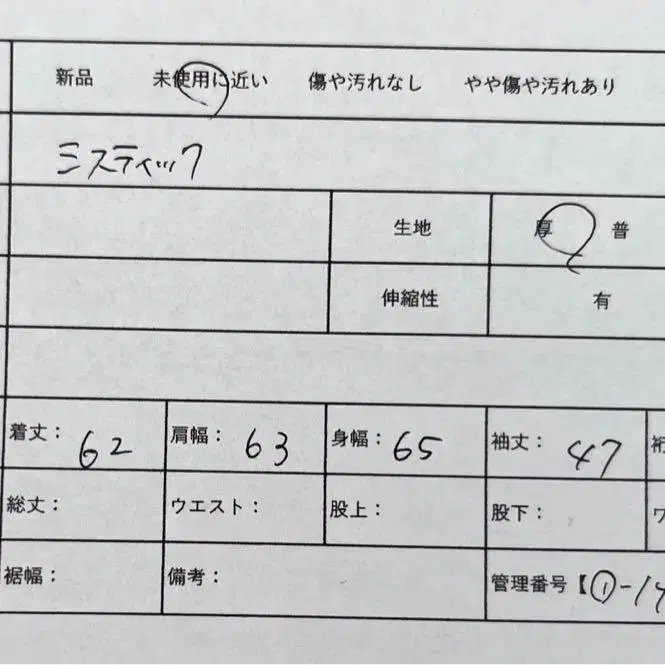 新品 未使用に近い 傷や汚れなし やや傷や汚れあり
ミスティック
生地 厚 普
伸縮性 有
着丈： 62 肩幅： 63 身幅： 65 袖丈： 47 裄
総丈： ウエスト： 股上： 股下： ワ
裾幅： 備考： 管理番号【①-14